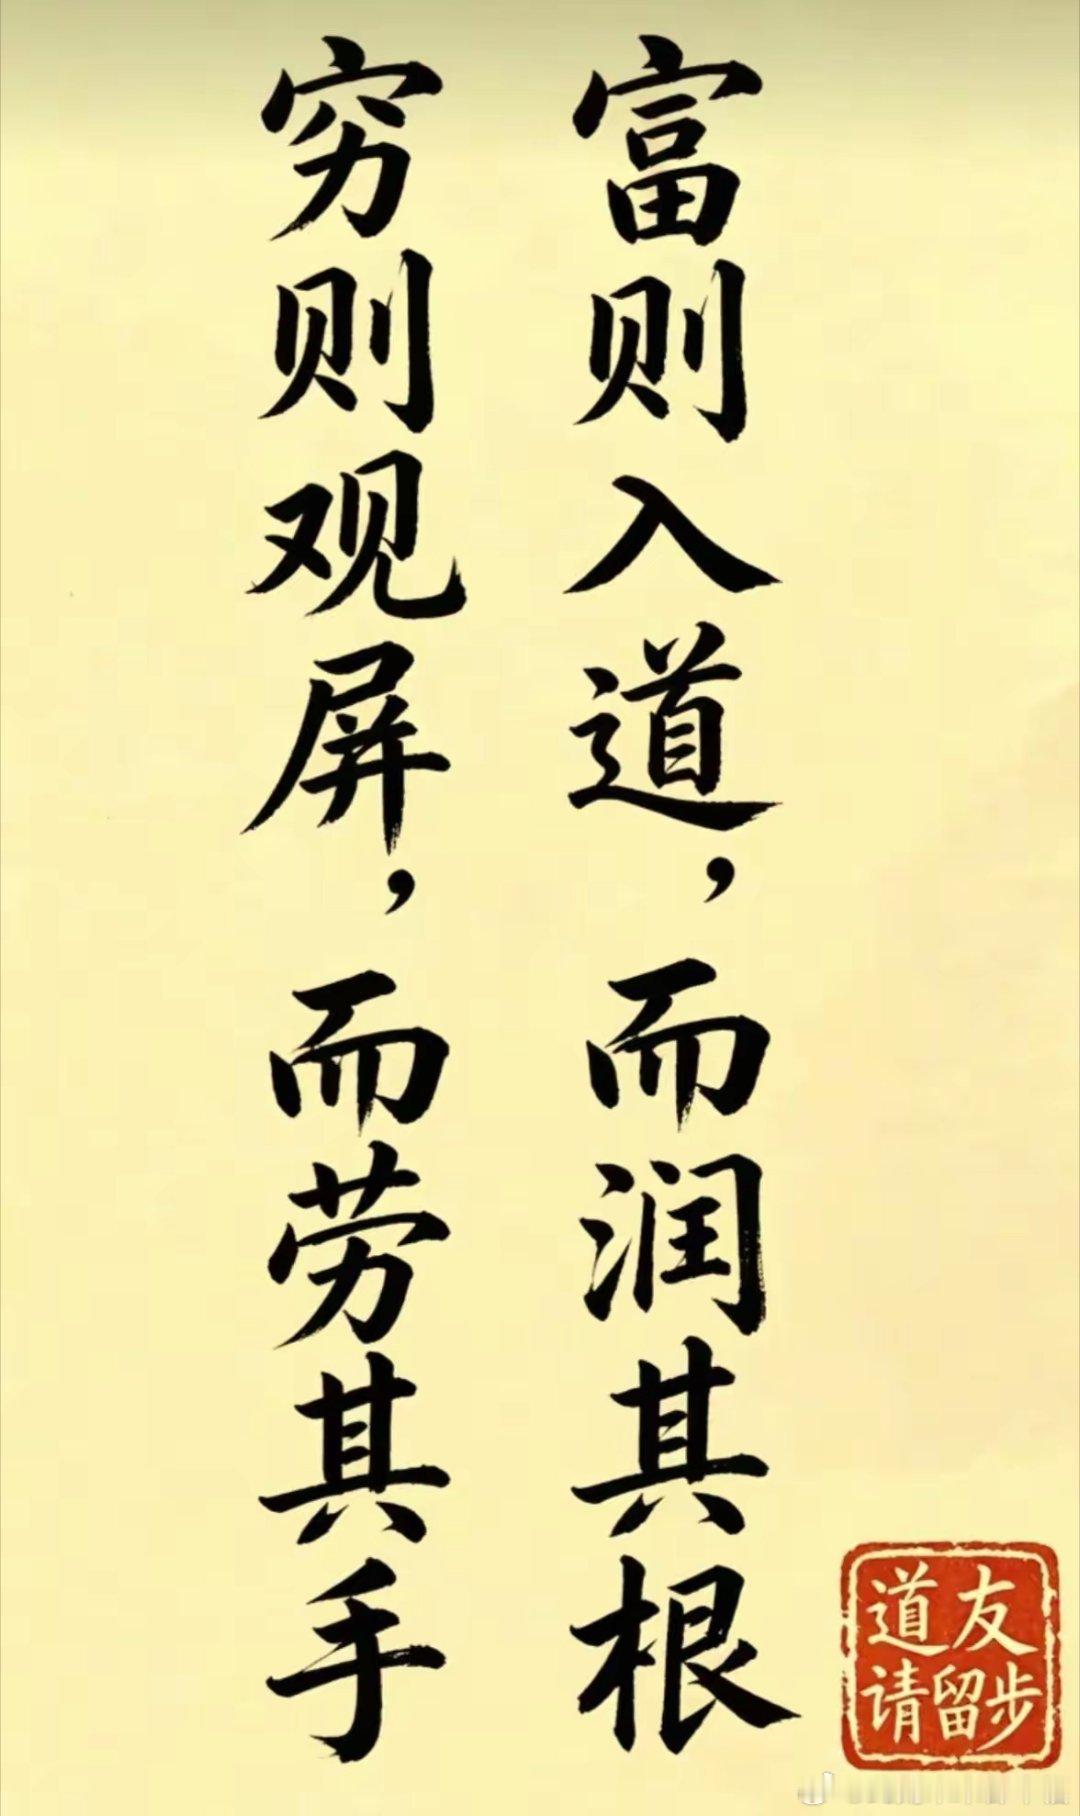 富则入道，而润其根
穷则观屏，而劳其手
道友
请留步